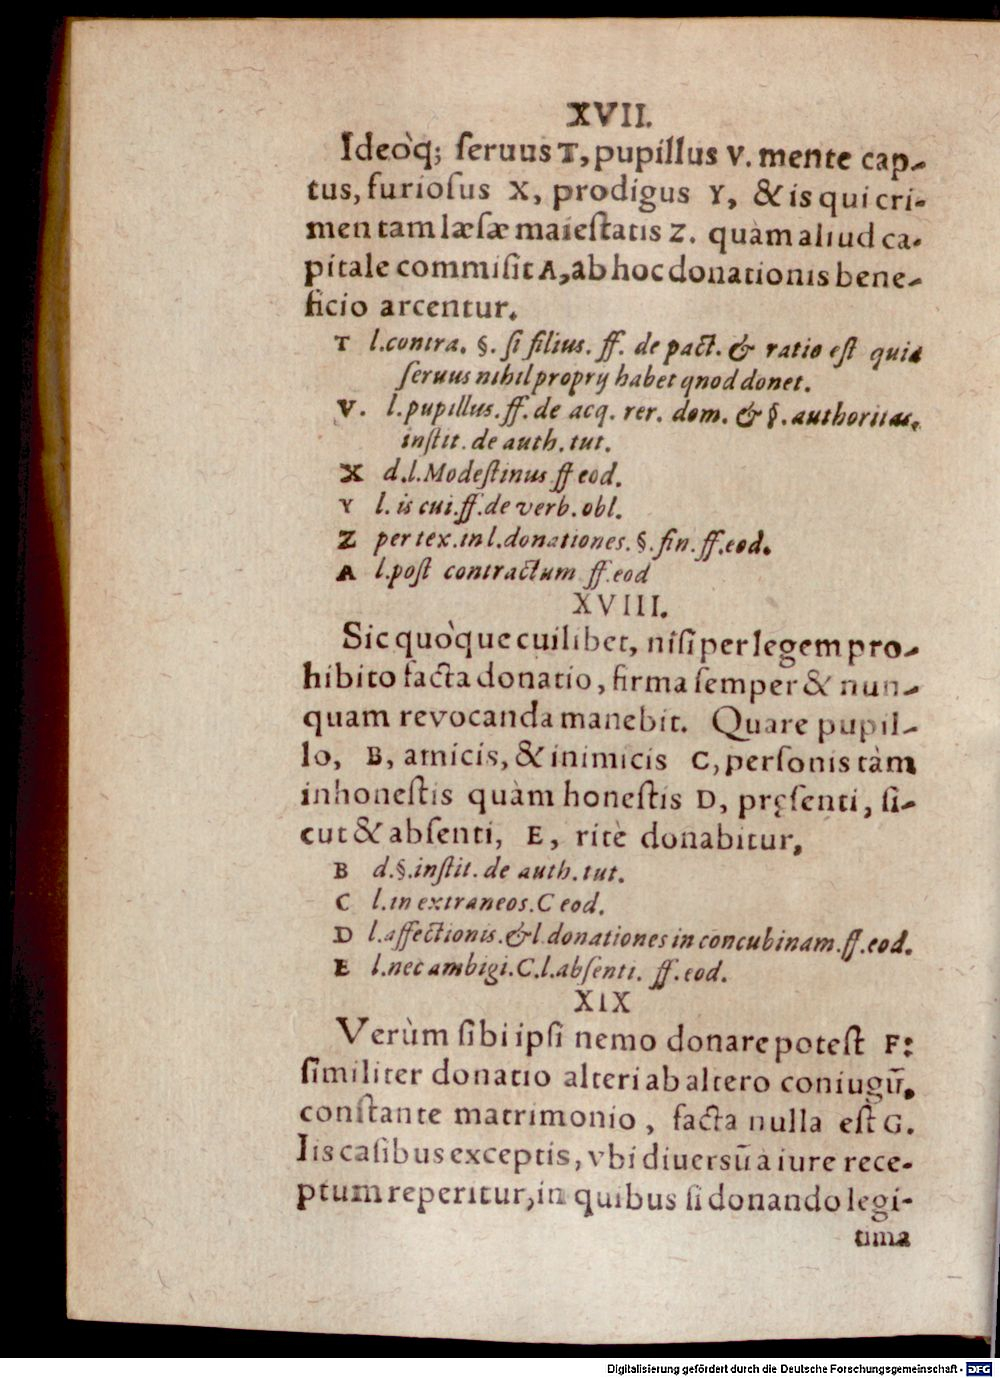 XVII.
Ideòq; ſeruus T, pupillus V. mente cap-
tus, furioſus X, prodigus Y, & is qui cri-
men tam læſæ maieſtatis Z. quàm aliud ca-
pitale commiſit A, ab hoc donationis bene-
ficio arcentur.
T l.contra. §. ſi filius. ff. de pact. & ratio eſt quia
ſeruus nihil proprij habet qnod donet.
V. l.pupillus.ff. de acq. rer. dom. & §. authoritas.
inſtit. de auth. tut.
X d.l.Modeſtinus ff eod.
Y l. is cui.ff.de verb. obl.
Z per tex.in l.donationes.§.fin.ff.eod.
A l.poſt contractum ff.eod
XVIII.
Sic quòque cuilibet, niſi per legem pro-
hibito facta donatio, firma ſemper & nun-
quam revocanda manebit. Quare pupil-
lo, B, amicis, & inimicis C, perſonis tàm
inhoneſtis quàm honeſtis D, pręſenti, ſi-
cut & abſenti, E, ritè donabitur,
B d.§.inſtit. de auth. tut.
C l.in extraneos.C eod.
D l.affectionis.& l donationes in concubinam.ff.eod.
E l.nec ambigi.C.l.abſenti. ff.eod.
XIX
Verùm ſibi ipſi nemo donare poteſt F:
ſimiliter donatio alteri ab altero coniugũ,
conſtante matrimonio, facta nulla eſt G.
Iis caſibus exceptis, vbi diuersũ a iure rece-
ptum reperitur, in quibus ſi donando legi-
tima
Digitalisierung gefördert durch die Deutsche Forschungsgemeinschaft - DFG